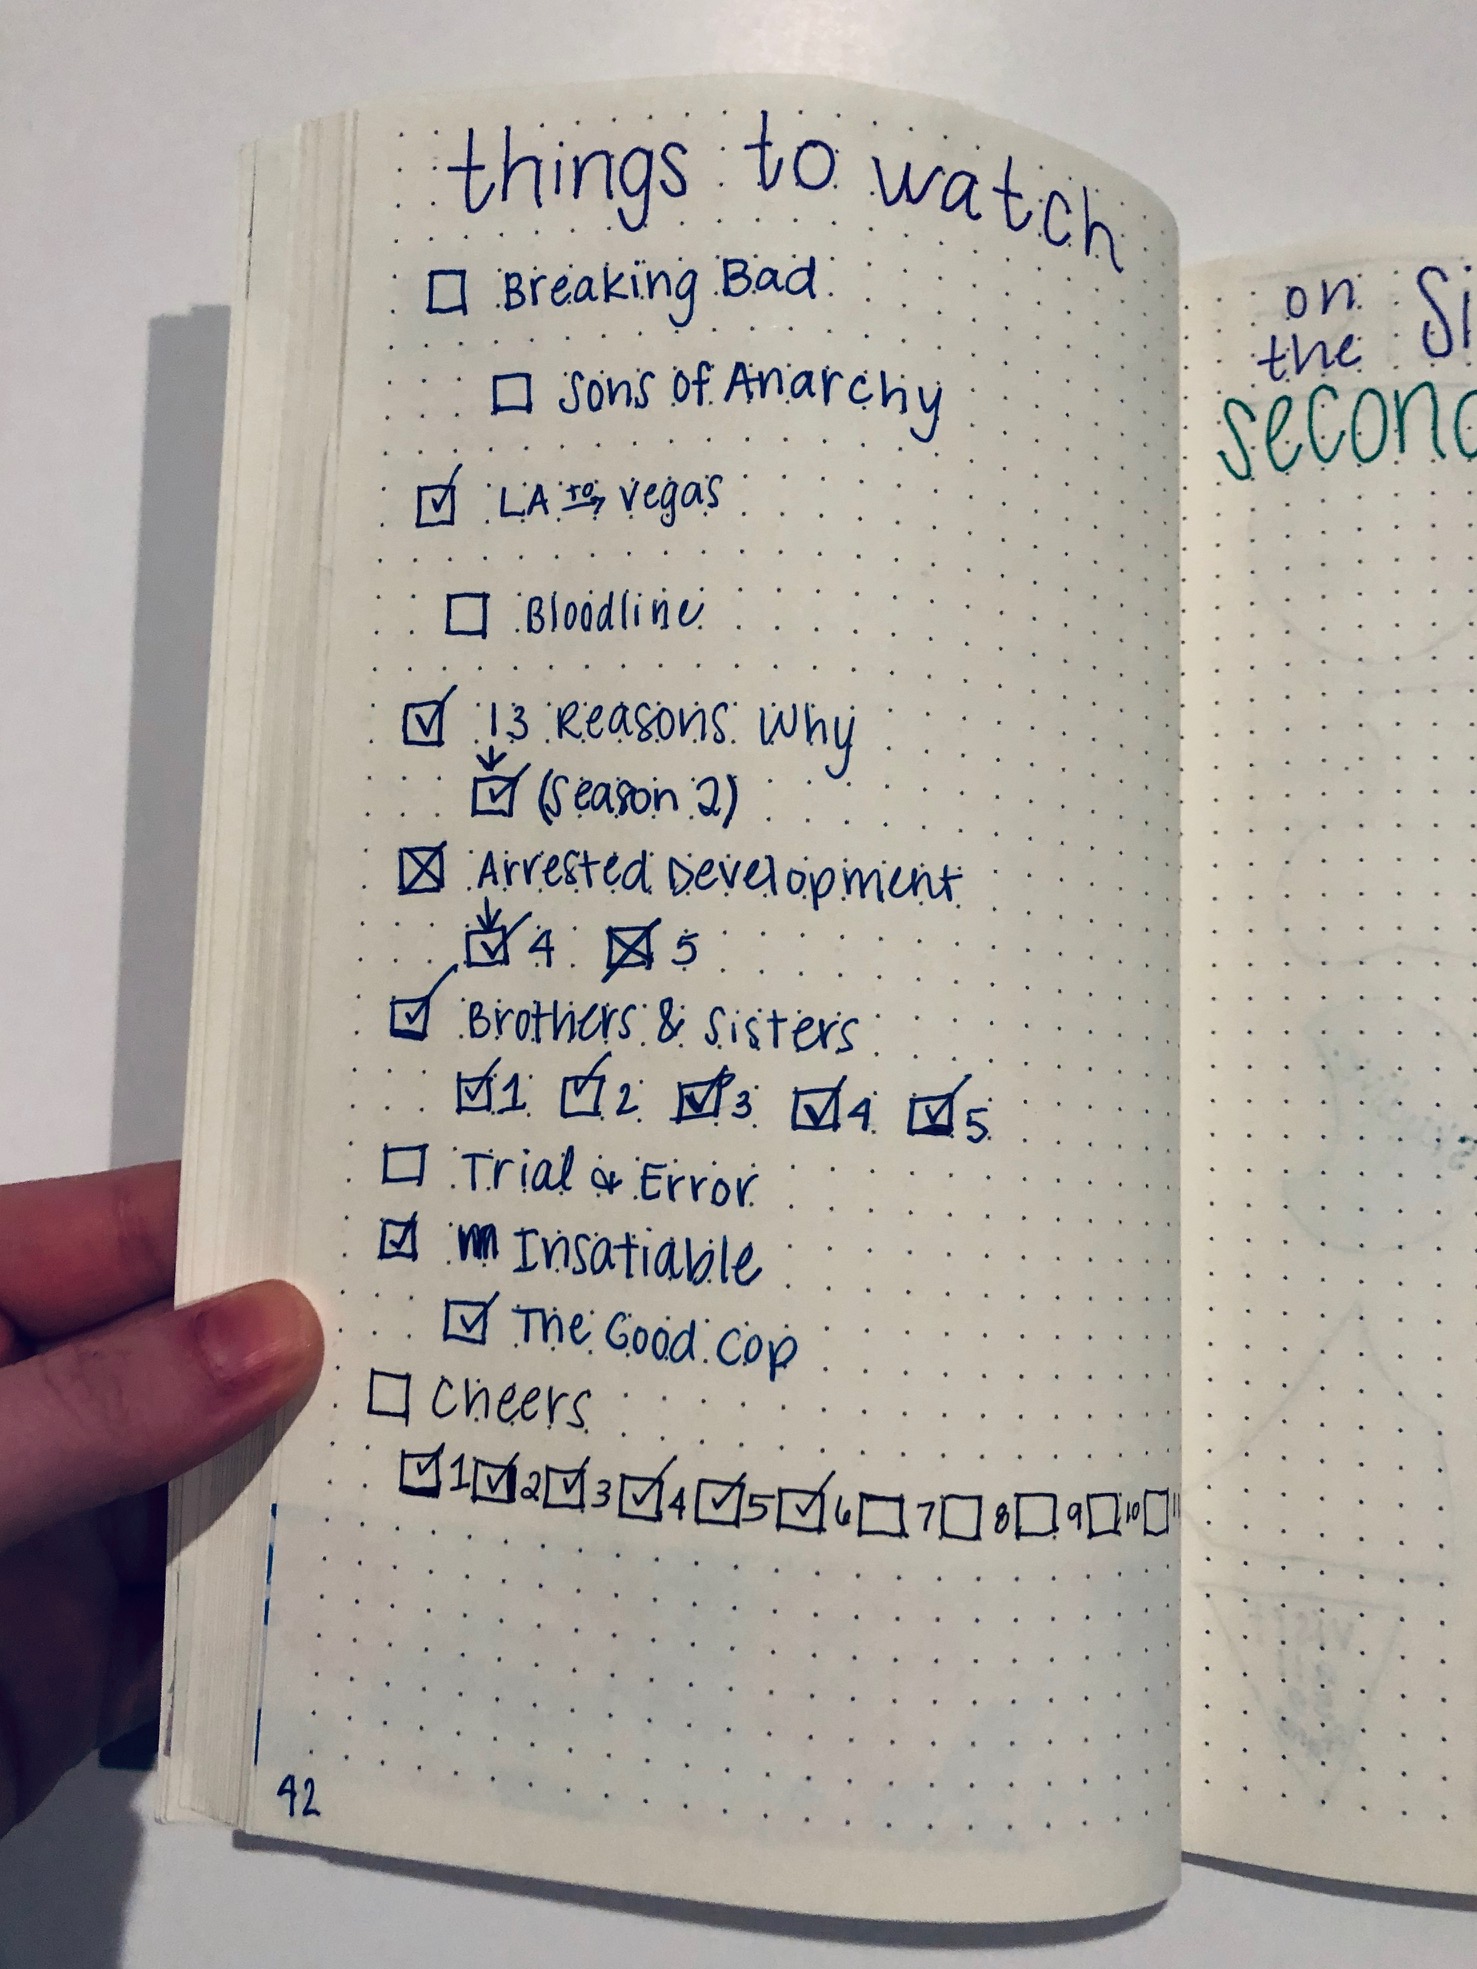 things to watch
☐ Breaking Bad
☐ Sons of Anarchy
☑ LA to→ Vegas
☐ Bloodline
☑ 13 Reasons Why
↓
☑ (Season 2)
☒ Arrested Development
↓
☑ 4 ☒ 5
☑ Brothers & Sisters
☑ 1 ☑ 2 ☑ 3 ☑ 4 ☑ 5
☐ Trial & Error
☑ Insatiable
☑ The Good Cop
☐ Cheers
☑ 1 ☑ 2 ☑ 3 ☑ 4 ☑ 5 ☑ 6 ☐ 7 ☐ 8 ☐ 9 ☐ 10 ☐ 11
42
on
the Si
second